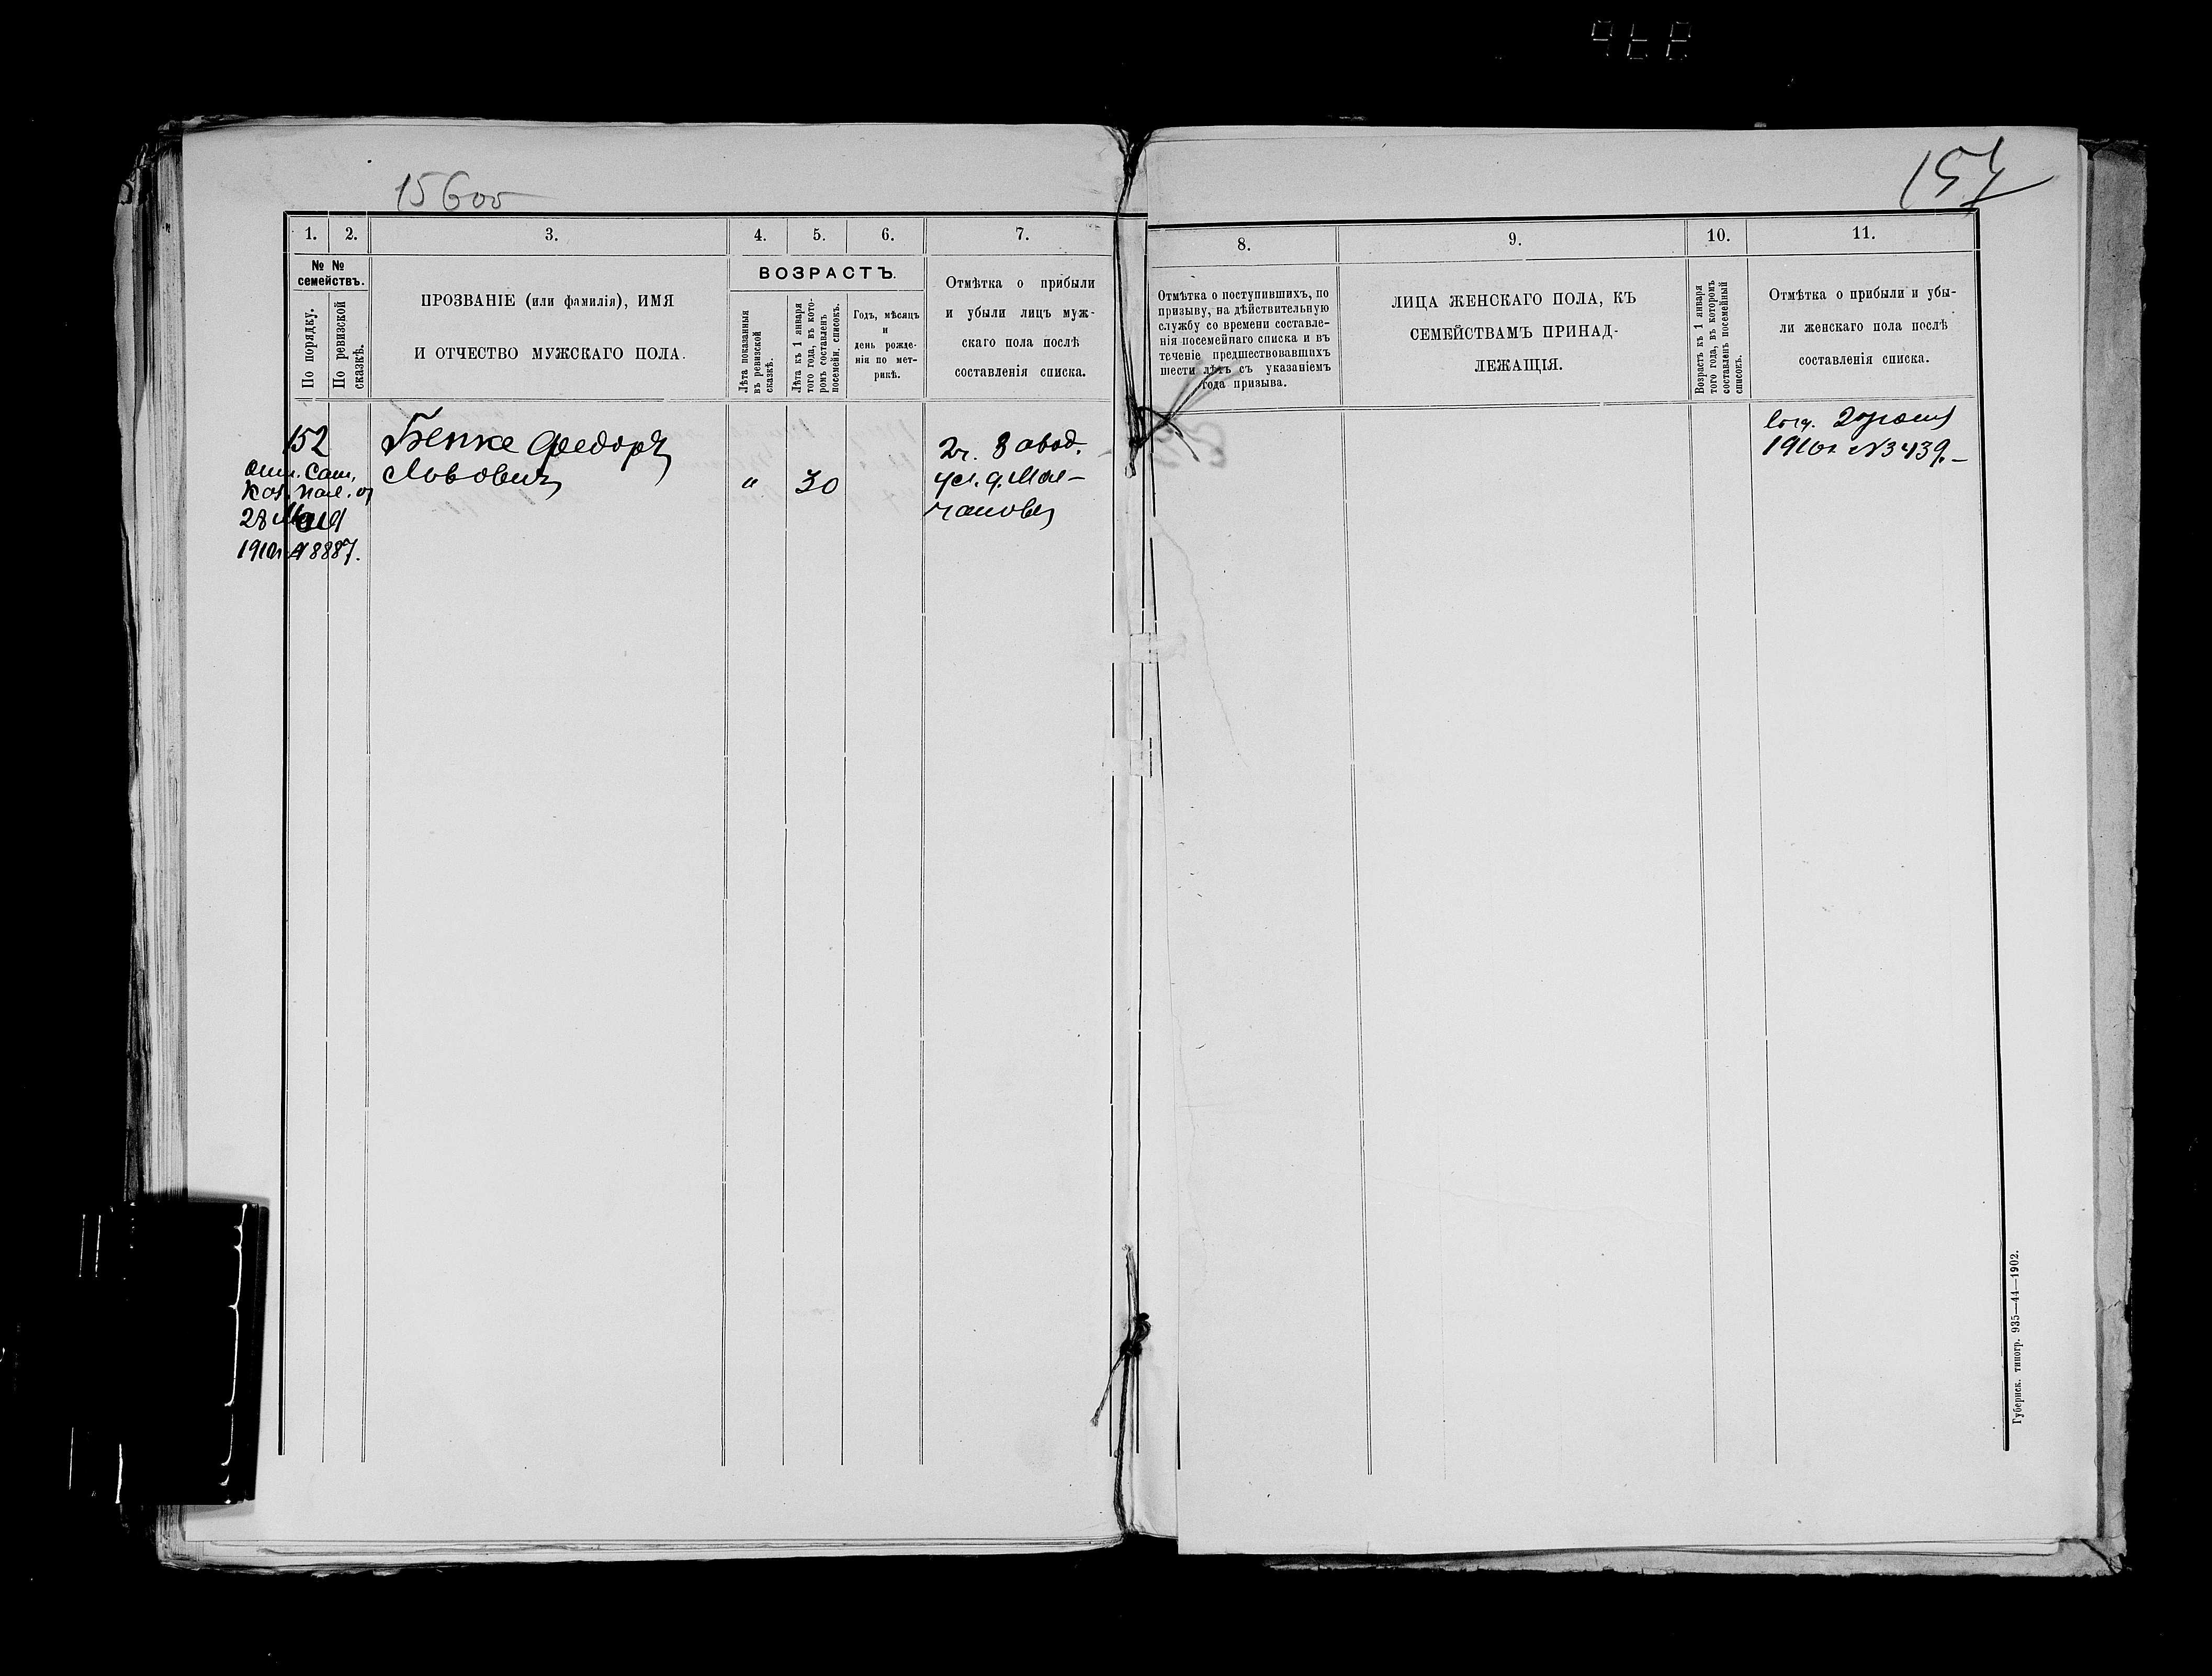 156об
157
1.
2.
3.
4.
5.
6.
7.
8.
9.
10.
11.
№ №
семействъ.
По порядку.
По ревизской
сказкѣ.
ПРОЗВАНІЕ (или фамилія), ИМЯ
И ОТЧЕСТВО МУЖСКАГО ПОЛА.
ВОЗРАСТЪ.
Лѣта показанныя
въ ревизской
сказкѣ.
Лѣта къ 1 января
того года, въ кото-
ромъ составленъ
посемейн. списокъ.
Годъ, мѣсяцъ
и
день рожде-
нія по мет-
рикѣ.
Отмѣтка о прибыли
и убыли лицъ муж-
скаго пола послѣ
составленія списка.
Отмѣтка о поступившихъ, по
призыву, на дѣйствительную
службу со времени составле-
нія посемейнаго списка и въ
теченіе предшествовавшихъ
шести лѣтъ съ указаніемъ
года призыва.
ЛИЦА ЖЕНСКАГО ПОЛА, КЪ
СЕМЕЙСТВАМЪ ПРИНАД-
ЛЕЖАЩІЯ.
Возрастъ къ 1 января
того года, въ которомъ
составленъ посемейный
списокъ.
Отмѣтка о прибыли и убы-
ли женскаго пола послѣ
составленія списка.
152
Сам.
Каз. Пал. от
28 Мая
1910г № 8887.
Бепке Федоръ
Львовичъ
"
30
2г.
1910г №3439.–
Губернск. типогр. 935—44—1902.